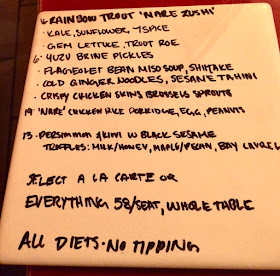 16 RAINBOW TROUT "NARE ZUSHI"
• KALE, SUNFLOWER, 7SPICE
• GEM LETTUCE, TROUT ROE
6 • YUZU BRINE PICKLES
• FLAGEOLET BEAN MISO SOUP, SHIITAKE
• COLD GINGER NOODLES, SESAME TAHINI
• CRISPY CHICKEN SKINS BRUSSELS SPROUTS
19 "NARE" CHICKEN RICE PORRIDGE, EGG, PEANUTS
13 • PERSIMMON & KIWI W BLACK SESAME
TRUFFLES: MILK/HONEY, MAPLE/PECAN, BAY LAUREL
SELECT A LA CARTE OR
EVERYTHING 58/SEAT, WHOLE TABLE
ALL DIETS • NO TIPPING